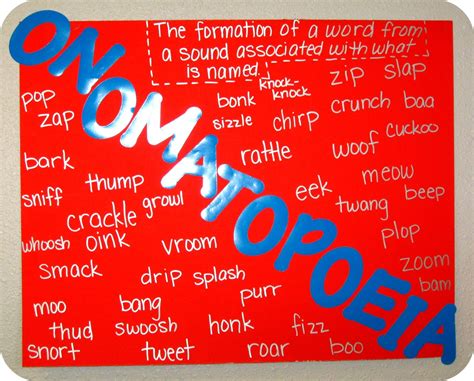 ONOMATOPOEIA
The formation of a word from
a sound associated with what
is named.
zip
slap
knock-
knock
pop
zap
bonk
crunch
baa
sizzle
chirp
cuckoo
bark
rattle
woof
sniff
thump
eek
meow
beep
growl
crackle
twang
whoosh
oink
vroom
plop
smack
drip
splash
zoom
bam
purr
moo
bang
thud
swoosh
honk
fizz
snort
tweet
roar
boo